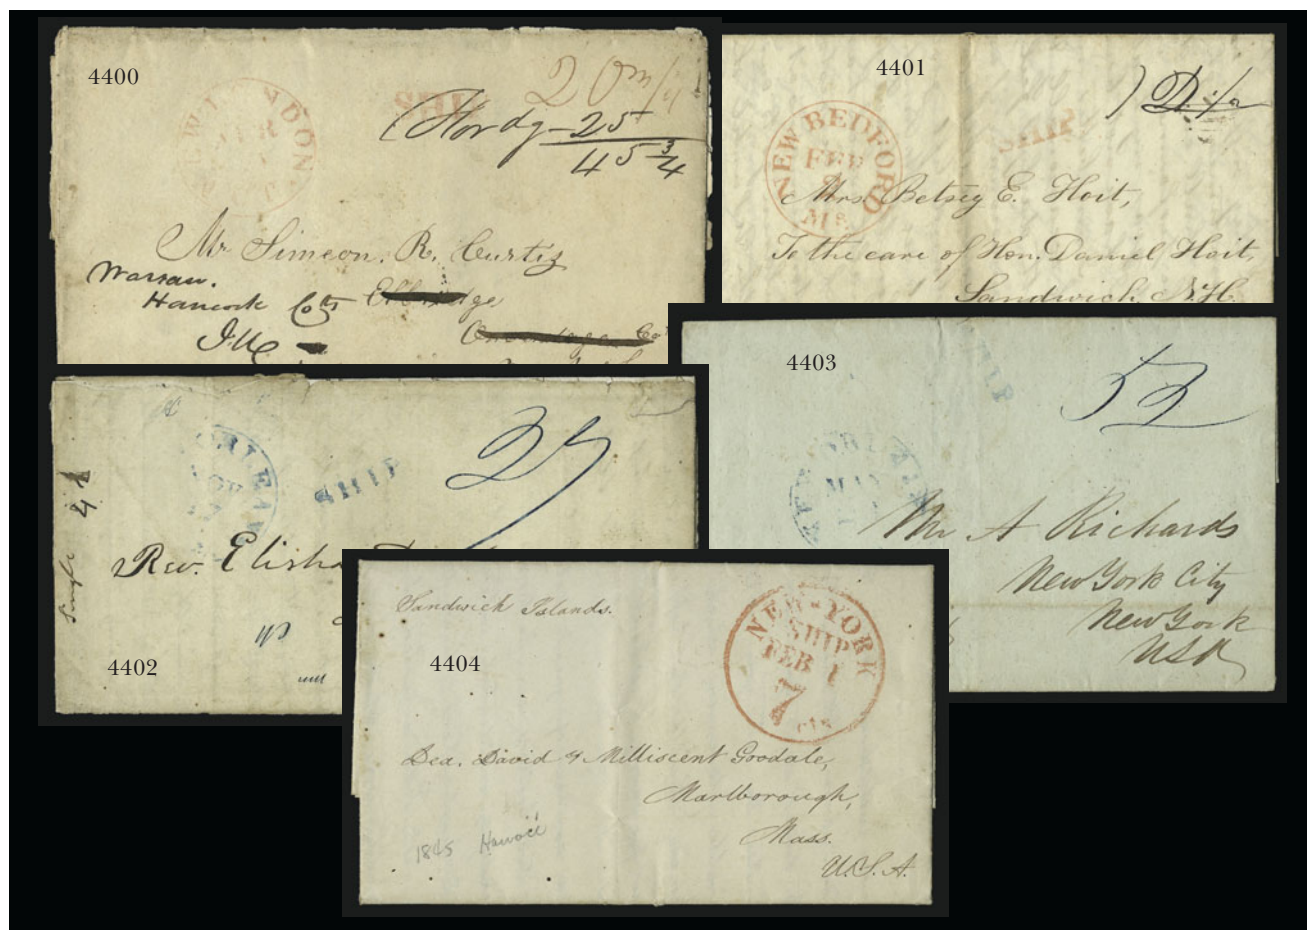 4400
NEW LONDON
SHIP
20
Fordg 25
45 3/4
Mr Simeon. R. Curtis
Warsaw.
Hancock Co
Ill
Elbridge
Onondaga Co
4401
NEW BEDFORD
FEB
Ms.
SHIP
Mrs. Betsey E. Hoit,
To the care of Hon. Daniel Hoit,
Sandwich, N.H.
4402
ORLEAN
NOV
SHIP
27
Single
Rev. Elisha
4403
SHIP
NEW ORLEANS
MAY
52
Mr A Richards
New York City
New York
USA
4404
Sandwich Islands.
NEW-YORK
SHIP
FEB 1
7
cts
Dea. David & Milliscent Goodale,
Marlborough,
Mass.
U.S.A.
1845 Hawaii